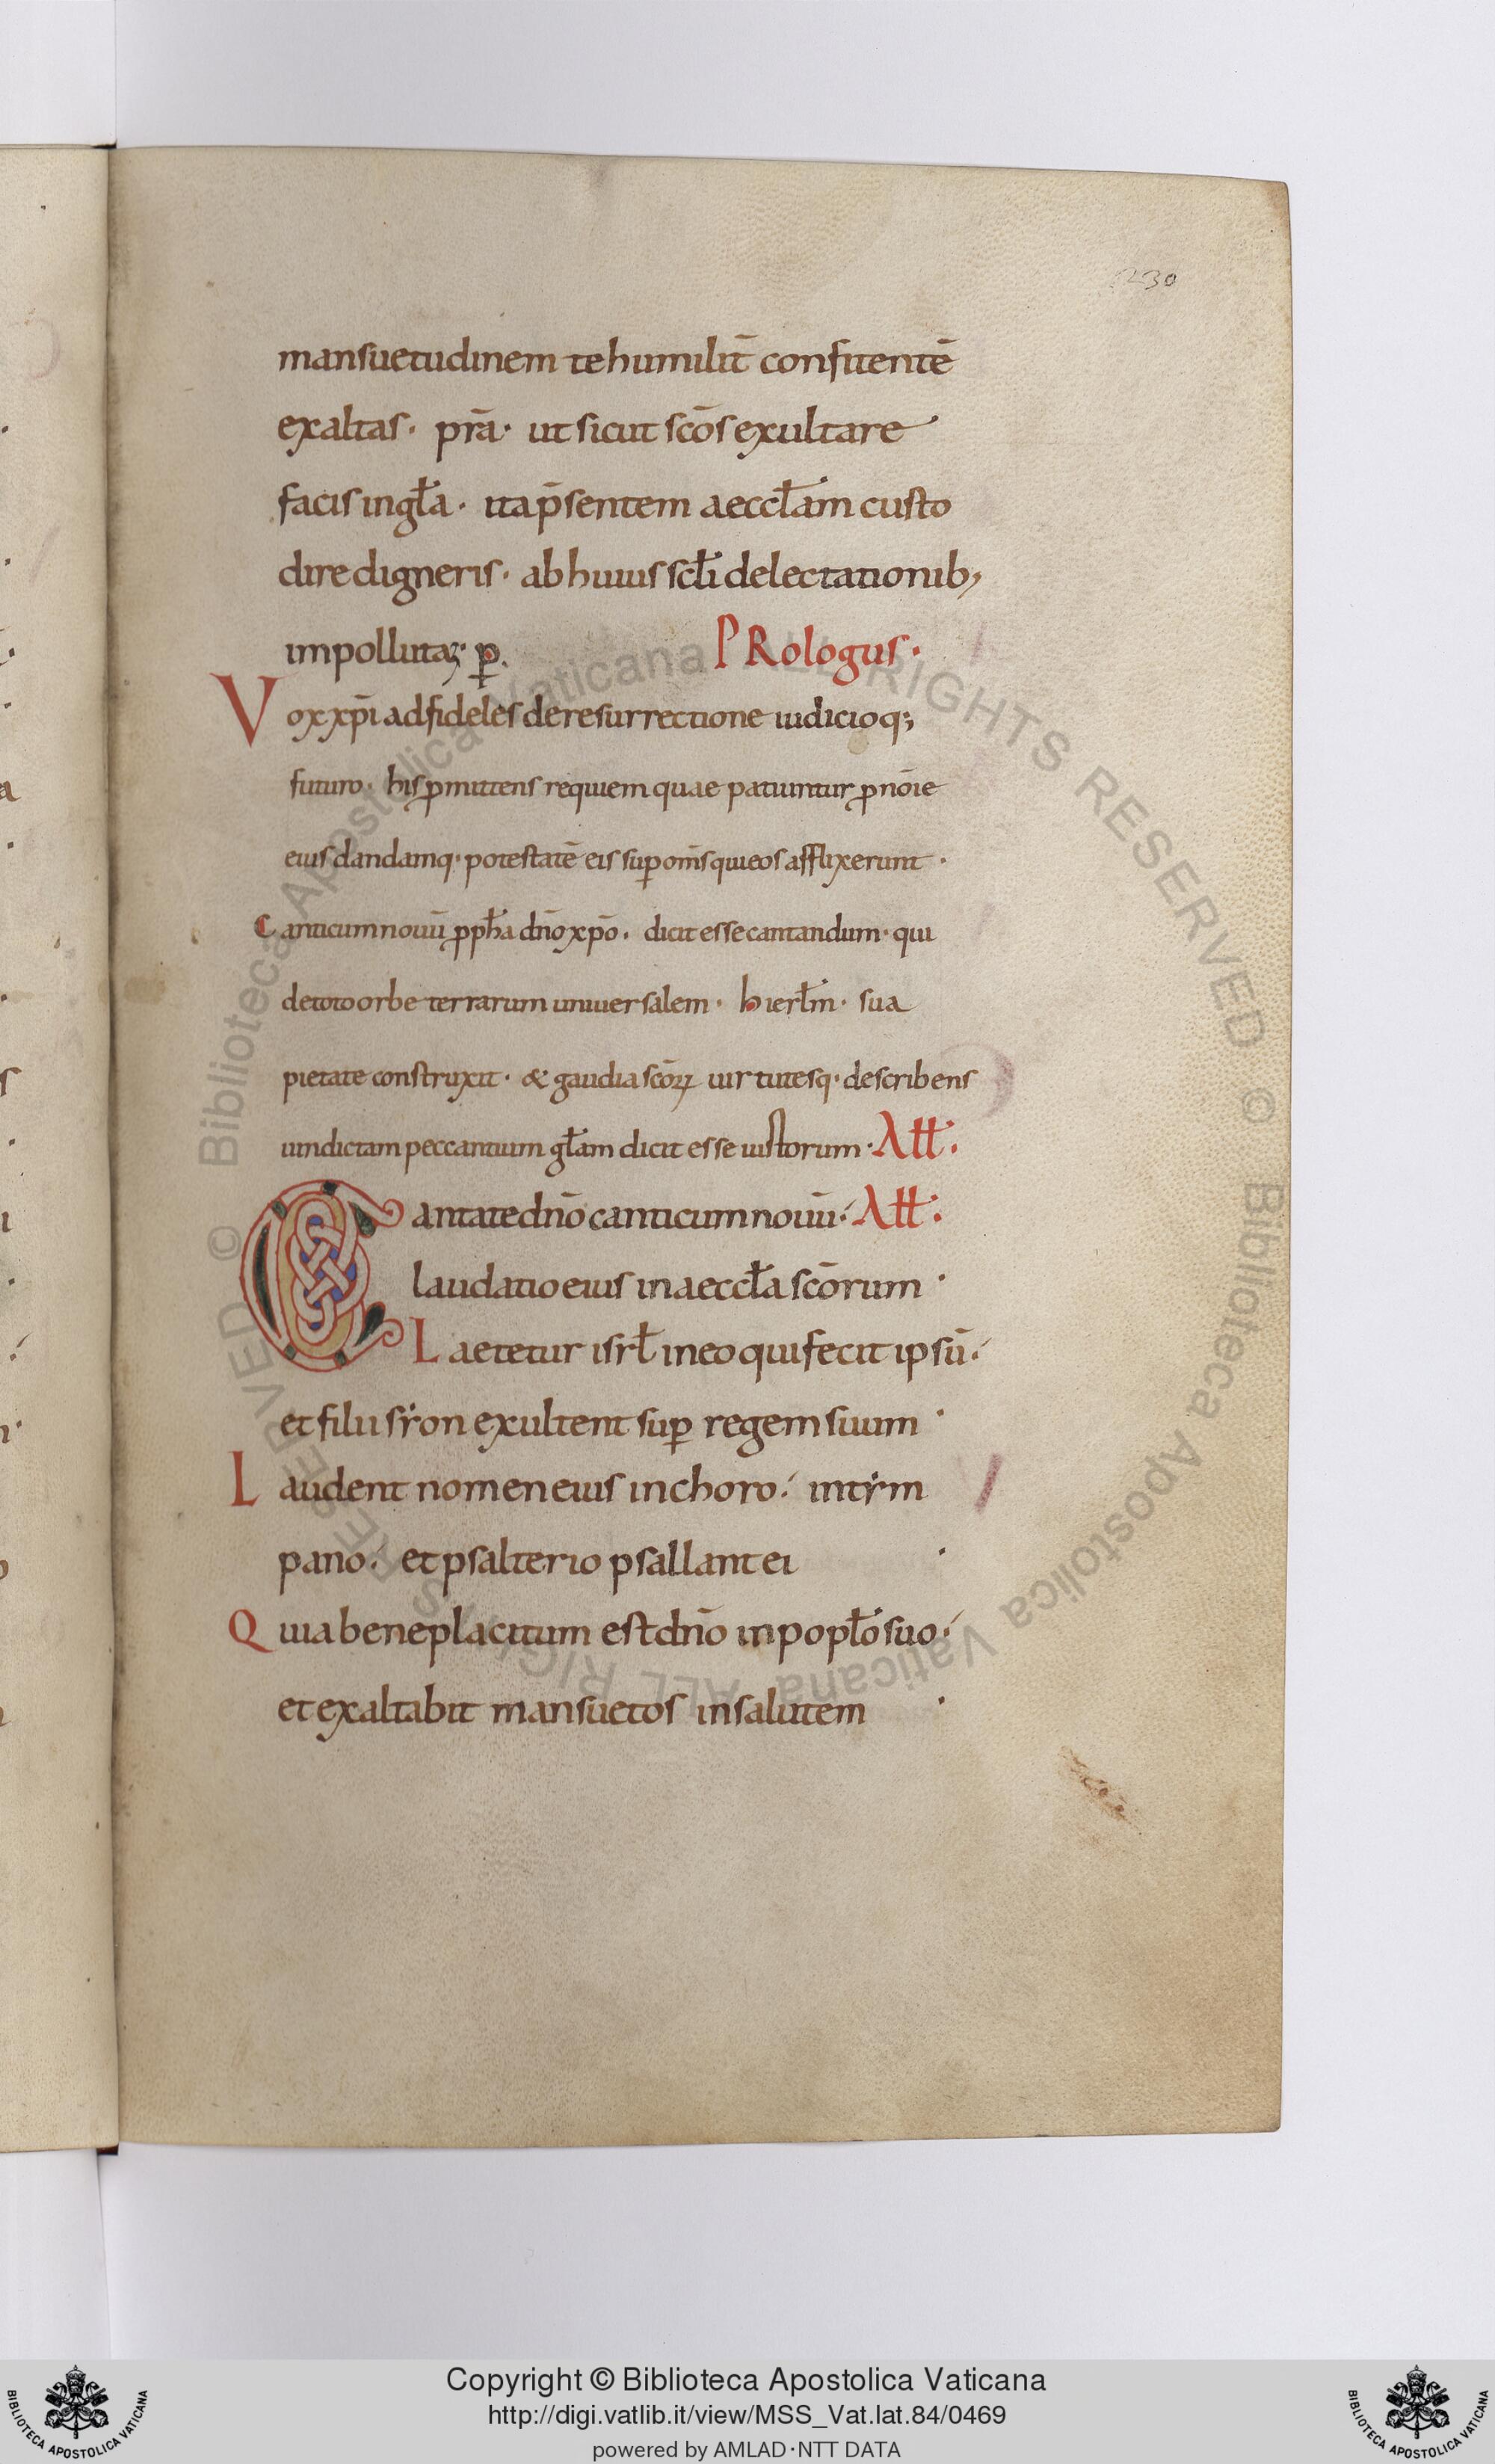 230
mansuetudinem te humilit̄ confitentē
exaltas · p̄rā · ut sicut sc̄os exultare
facis in gl̄a · ita p̄sentem aeccl̄am custo
dire digneris · ab huius scl̄i delectationib;
impollutā · p.
PRologus ·
Vox xp̄i ad fideles de resurrectione iudicioq;
futuro · his ꝓmittens requiem quae patiuntur ꝓ nōie
eius dandamq· potestatē eis suꝑ om̄s qui eos afflixerunt ·
Canticum nouū ꝑ ph̄a dn̄o xp̄o · dicit esse cantandum · qui
de toto orbe terrarum uniuersalem · hierl̄m · sua
pietate construxit · & gaudia sc̄oꝝ uirtutesq· describens
uindictam peccantium gl̄am dicit esse iustorum · All̄ ·
Cantate dn̄o canticum nouū · All̄ ·
laudatio eius in aeccl̄a sc̄orum ·
Laetetur isrl̄ in eo qui fecit ipsū ·
et filii sẏon exultent suꝑ regem suum ·
Laudent nomen eius in choro · in tẏm
pano · et psalterio psallant ei ·
Quia beneplacitum est dn̄o in popl̄o suo ·
et exaltabit mansuetos in salutem ·
© Biblioteca Apostolica Vaticana ALL RIGHTS RESERVED © Biblioteca Apostolica Vaticana ALL RIGHTS RESERVED
Copyright © Biblioteca Apostolica Vaticana
http://digi.vatlib.it/view/MSS_Vat.lat.84/0469
powered by AMLAD·NTT DATA
BIBLIOTECA APOSTOLICA VATICANA
BIBLIOTECA APOSTOLICA VATICANA